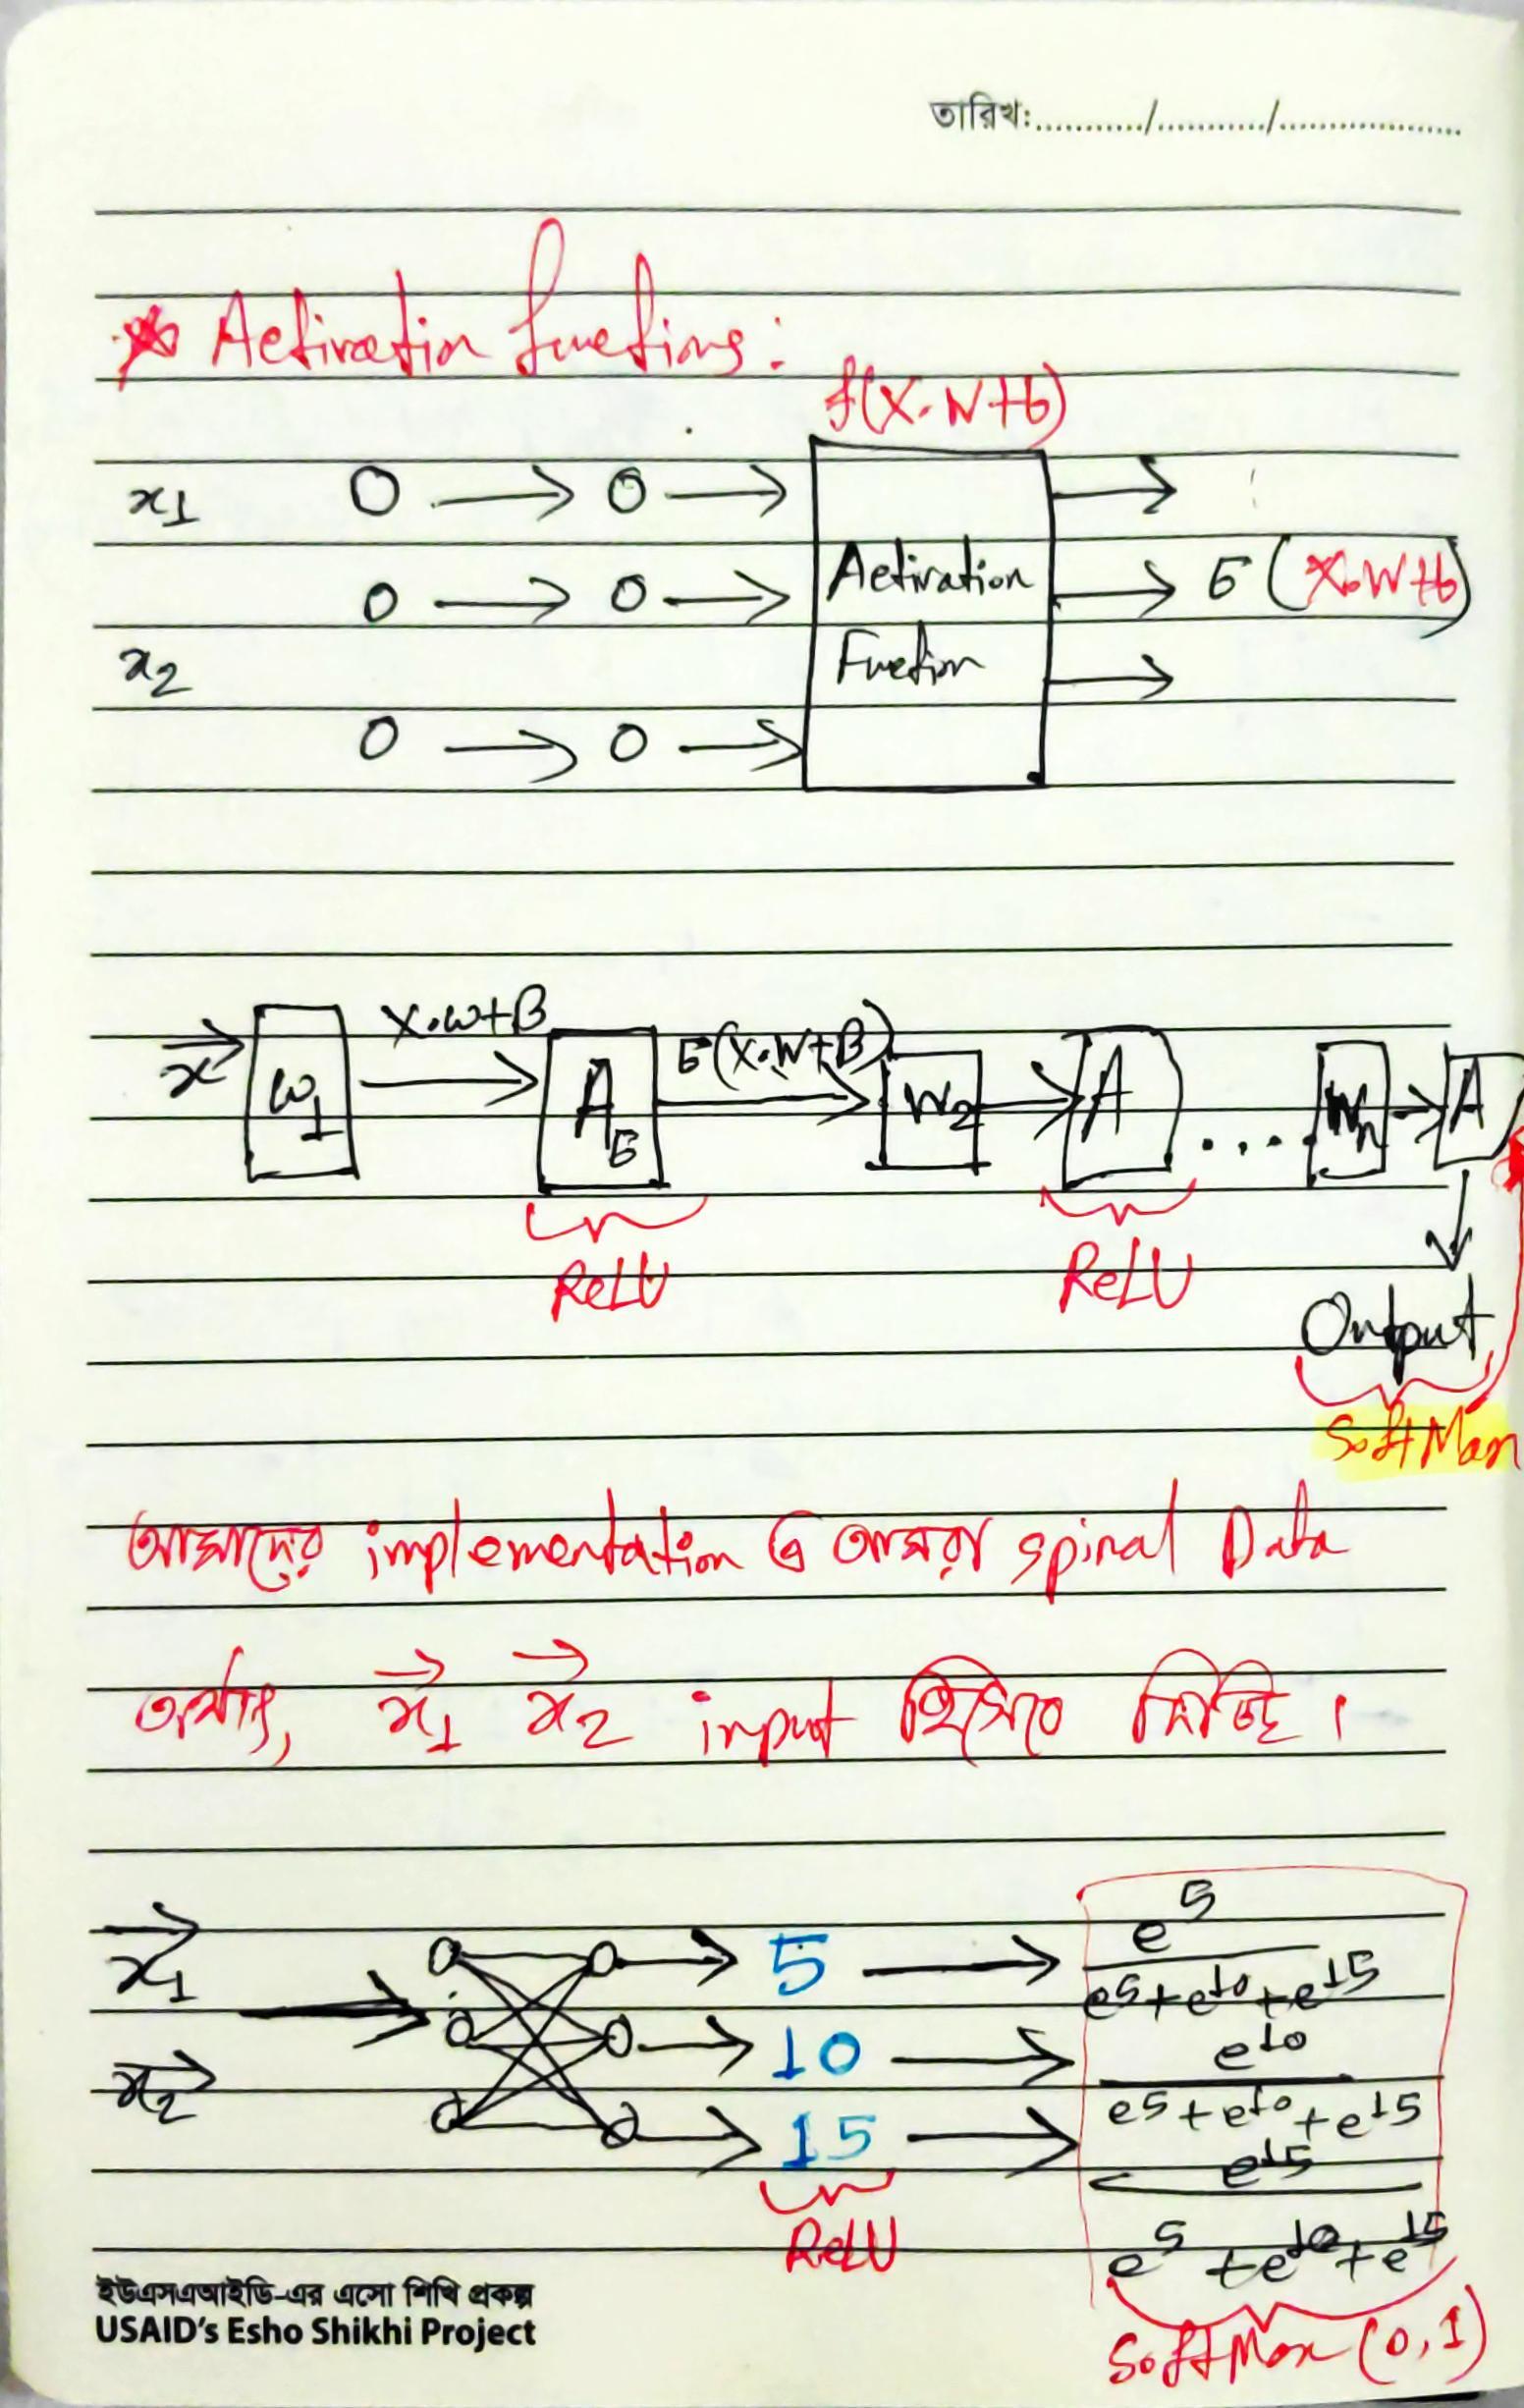 তারিখ:.........../.........../..................
* Activation functions:
f(X.W+b)
x1 O → O →
O → O → Activation → σ (X.W+b)
x2 Function →
O → O →
X.W+B
σ(X.W+B)
x W1 → Aσ → W2 → A .... Wn → A
ReLU ReLU
Output
SoftMax
আমাদের implementation এ আমরা spiral Data
অর্থাৎ, x1 x2 input হিসেবে দিচ্ছি।
x1 → 5 → e^5 / e^5+e^10+e^15
→ 10 → e^10 / e^5+e^10+e^15
x2 → 15 → e^15 / e^5+e^10+e^15
ReLU
SoftMax (0,1)
ইউএসএআইডি-এর এসো শিখি প্রকল্প
USAID's Esho Shikhi Project